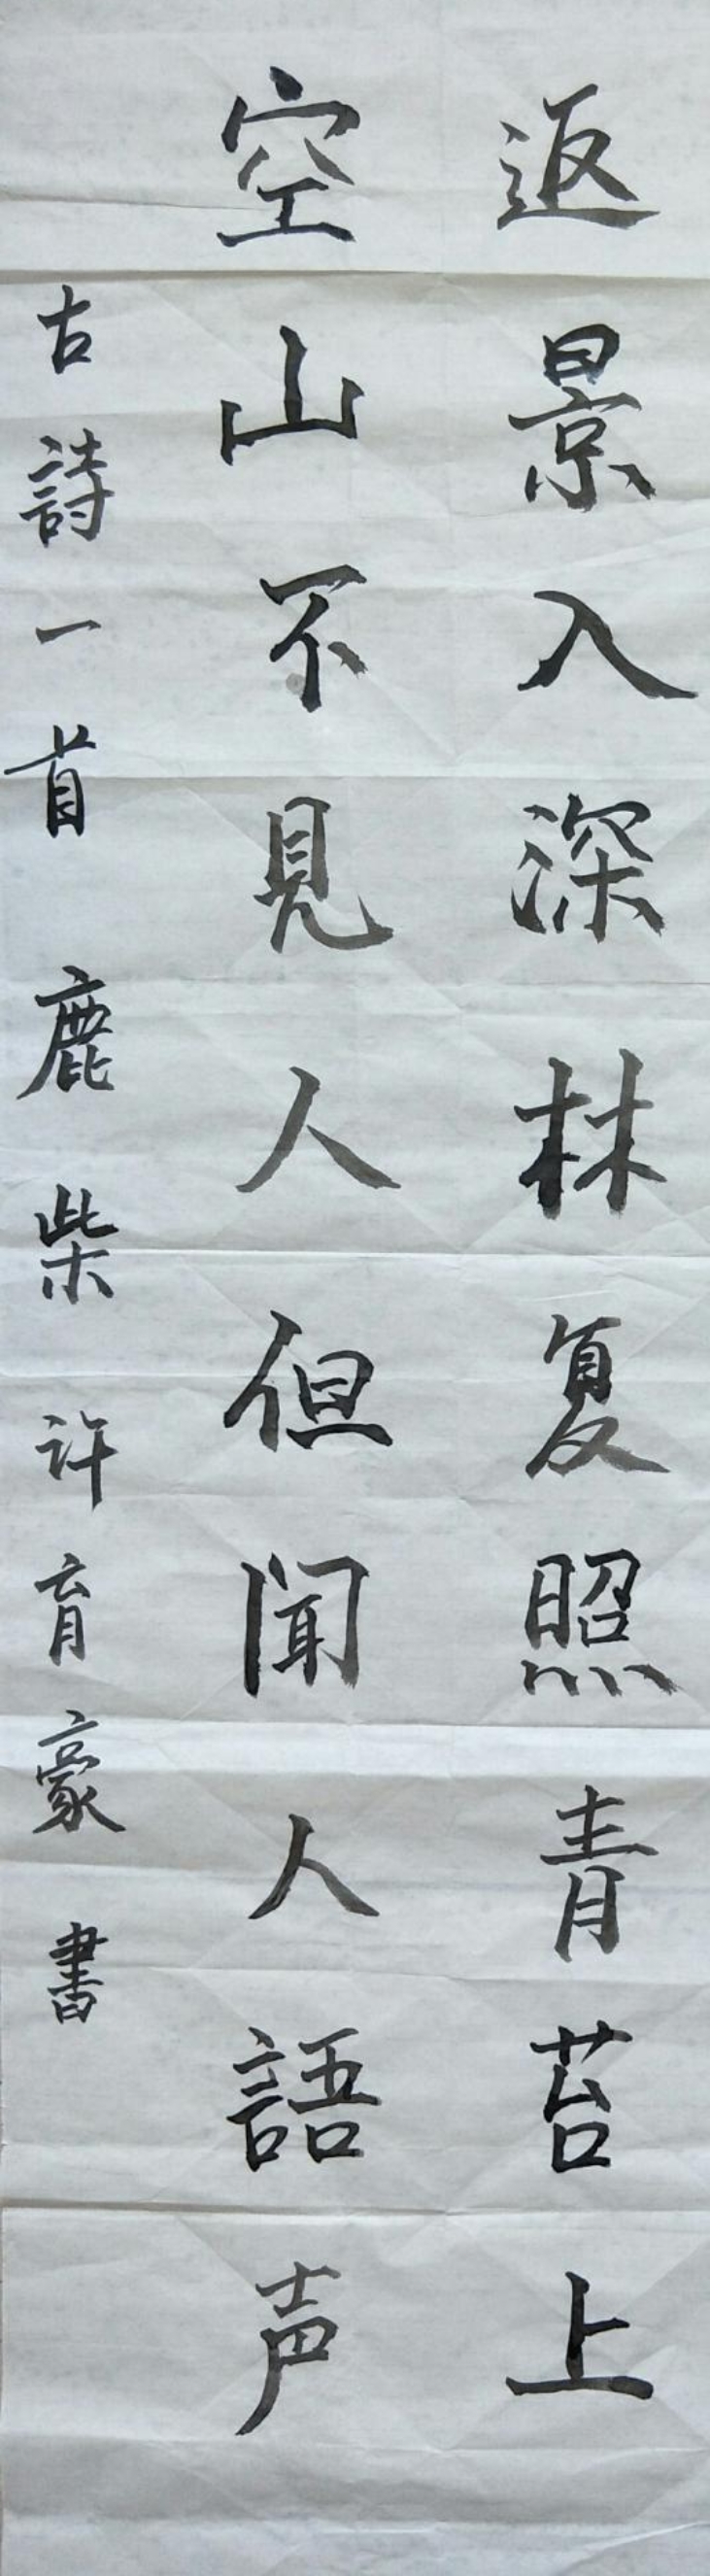 返景入深林复照青苔上
空山不見人但闻人語声
古詩一首 鹿柴 许育豪書